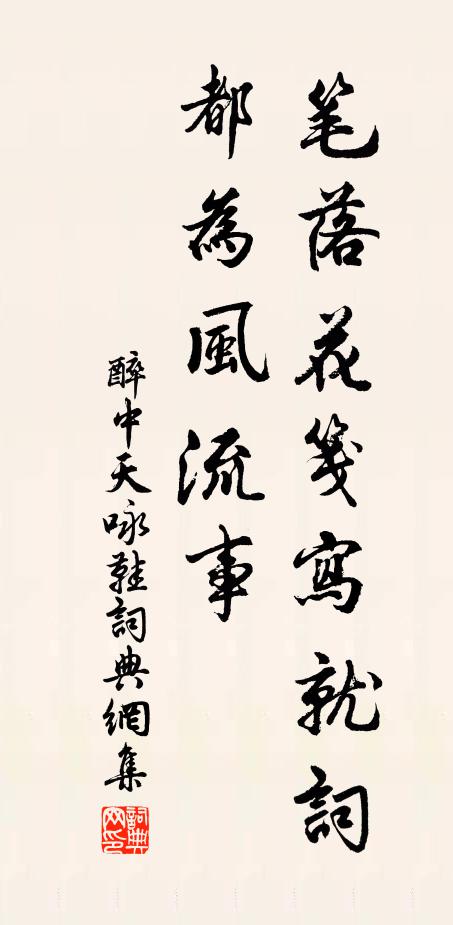 笔落花笺寫就詞
都為風流事
醉中天咏鞋詞典網集
詞典網印